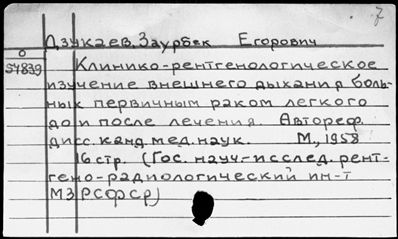 7
Дзукаев, Заурбек Егорович
О
57839
Клинико-рентгенологическое
изучение внешнего дыхания боль-
ных первичным раком легкого
до и после лечения. Автореф.
дисс. канд. мед. наук. М., 1958
16 стр. (Гос. науч.-исслед. рент-
гено-радиологический ин-т
МЗ РСФСР)